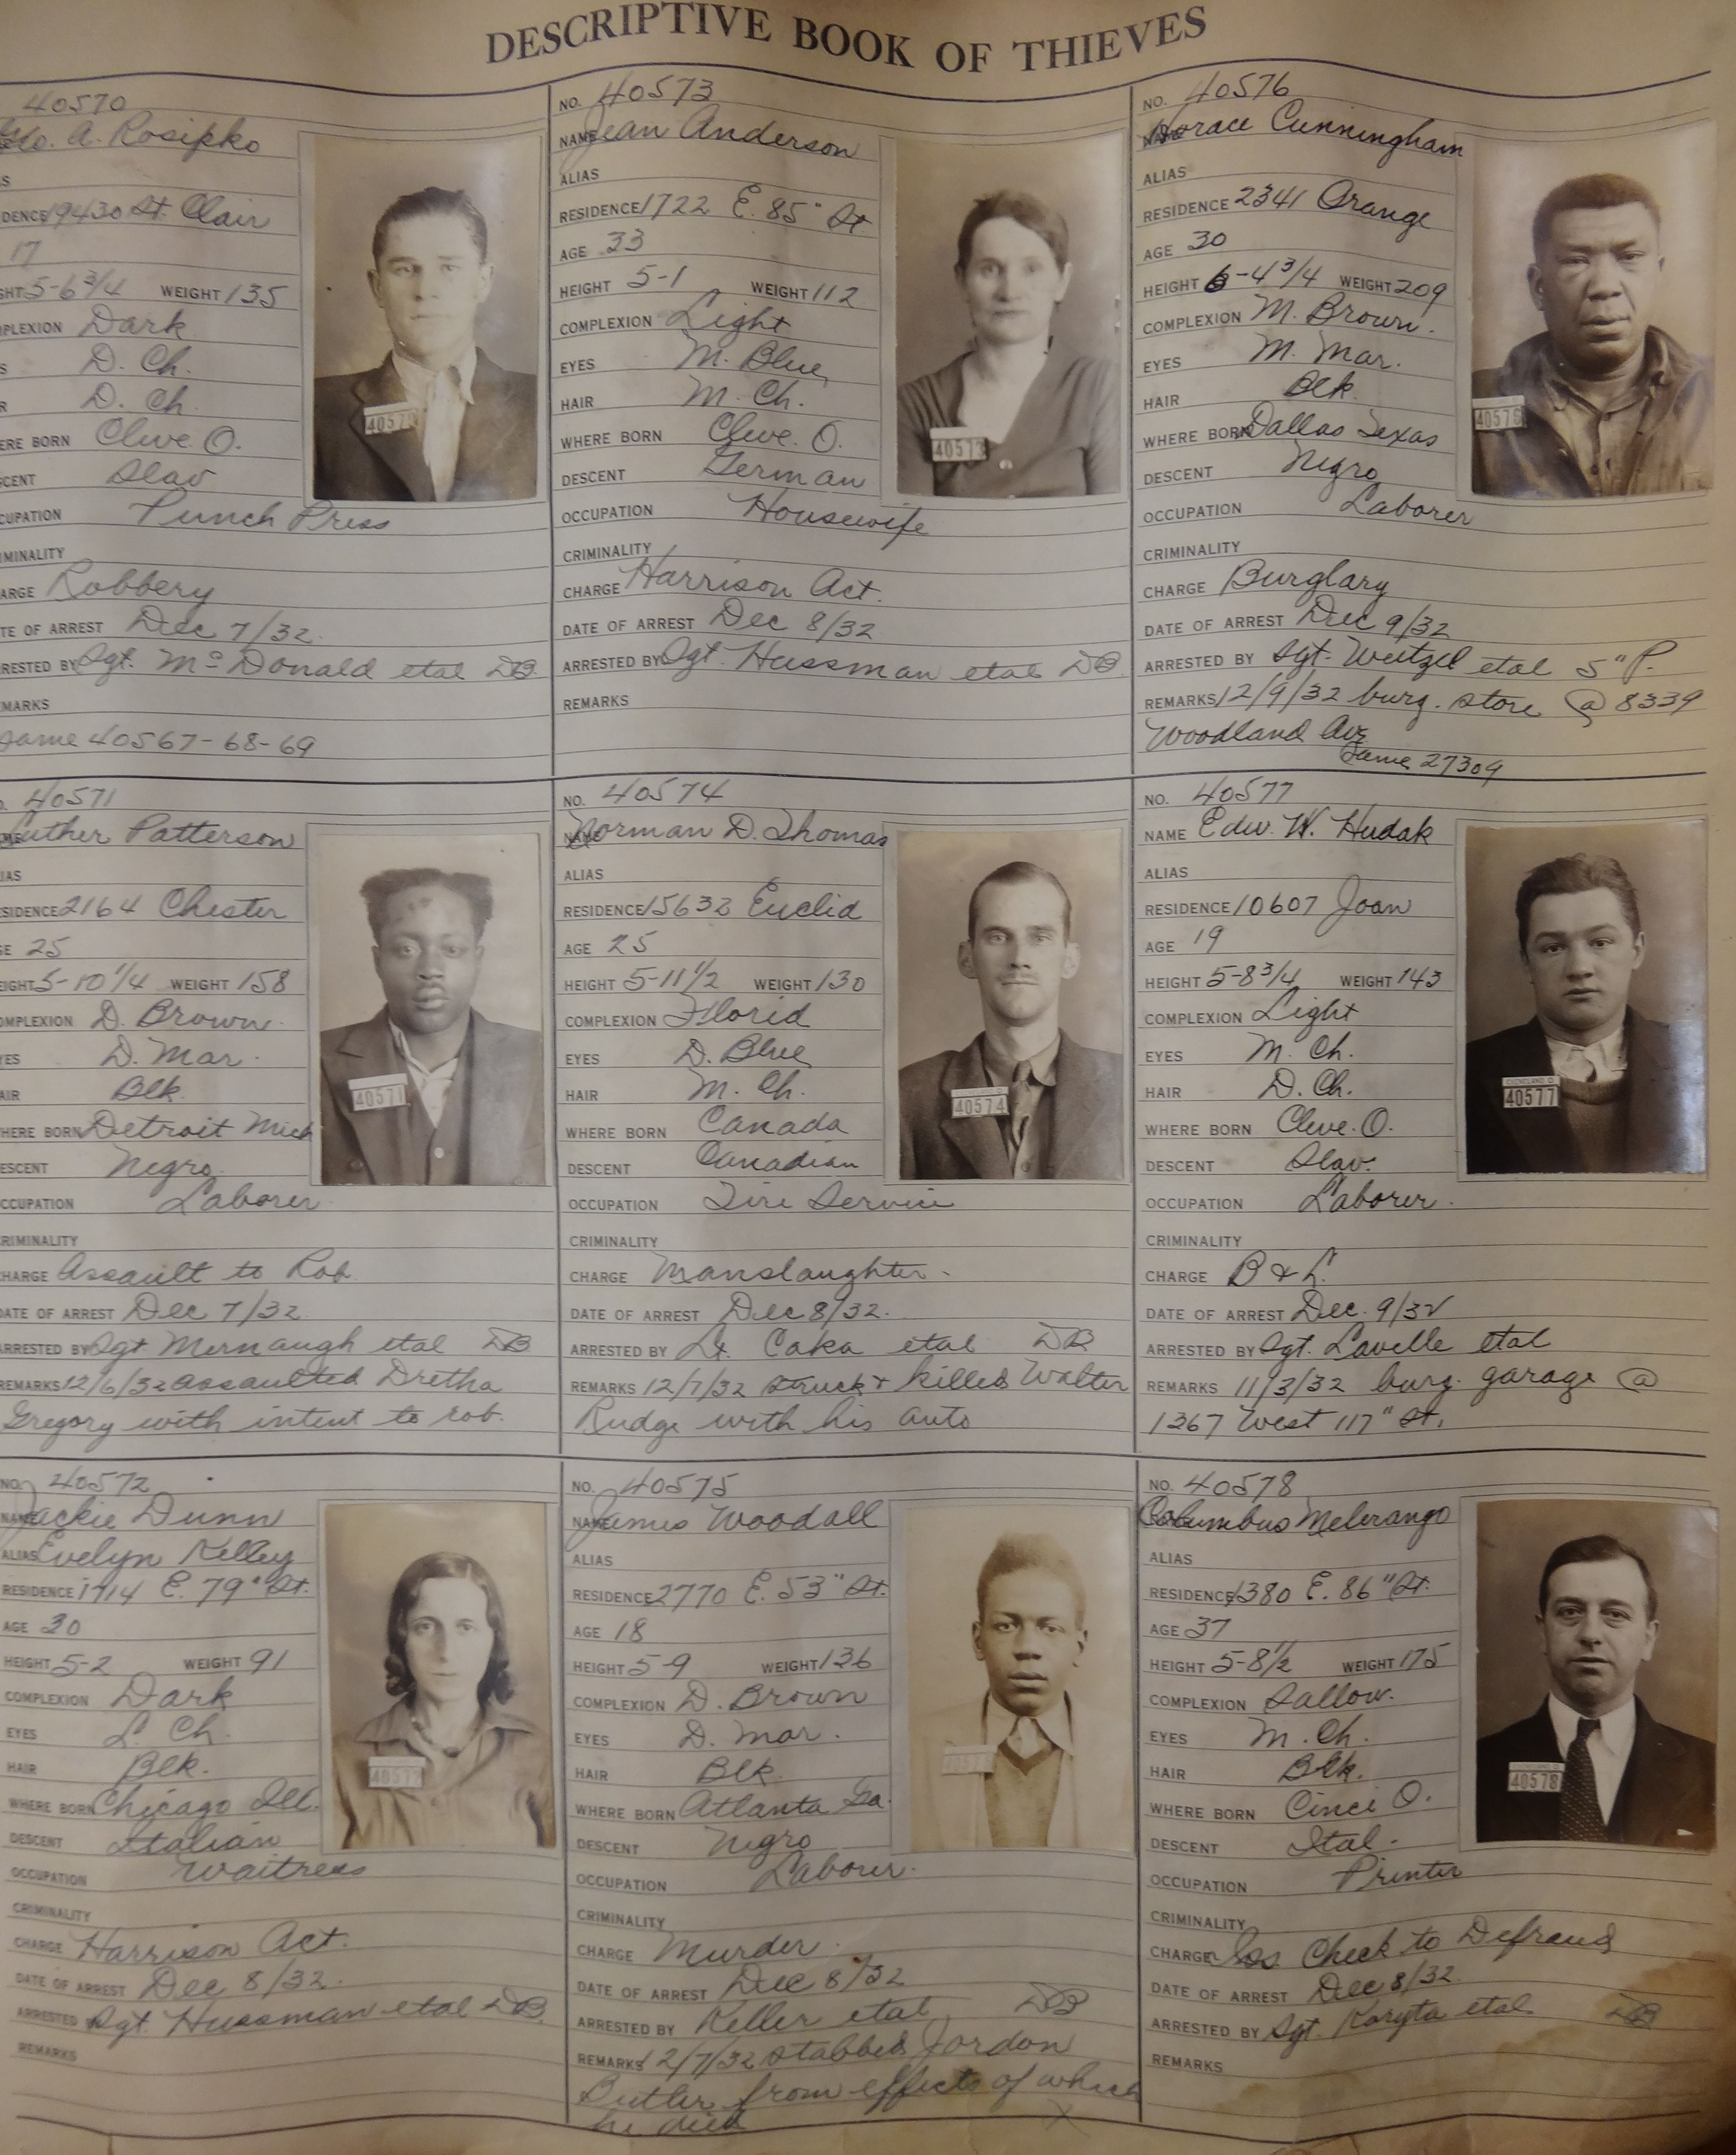 DESCRIPTIVE BOOK OF THIEVES
40570
A. Rosipko
DENCE 19430 St. Clair
17
GHT 5-6 3/4 WEIGHT 135
MPLEXION Dark
S D. Ch.
R D. Ch.
ERE BORN Cleve. O.
CENT Slav
CUPATION Punch Press
IMINALITY
ARGE Robbery
TE OF ARREST Dec 7/32.
RESTED BY Sgt. McDonald etal DB.
MARKS
Same 40567-68-69
40570
O. 40571
Luther Patterson
IAS
SIDENCE 2164 Chester
GE 25
EIGHT 5-10 1/4 WEIGHT 158
OMPLEXION D. Brown.
YES D. Mar.
AIR Blk.
HERE BORN Detroit Mich
ESCENT Negro.
CCUPATION Laborer
CRIMINALITY
CHARGE Assault to Rob.
DATE OF ARREST Dec 7/32
ARRESTED BY Sgt Mernaugh etal DB
REMARKS 12/6/32 assaulted Dretha
Gregory with intent to rob.
40571
NO. 40572
NAME Jackie Dunn
ALIAS Evelyn Kelley
RESIDENCE 1714 E. 79" St.
AGE 30
HEIGHT 5-2 WEIGHT 91
COMPLEXION Dark
EYES L. Ch.
HAIR Blk.
WHERE BORN Chicago Ill.
DESCENT Italian
OCCUPATION Waitress
CRIMINALITY
CHARGE Harrison Act.
DATE OF ARREST Dec 8/32.
ARRESTED Sgt. Hussman etal DB.
REMARKS
40572
NO. 40573
NAME Jean Anderson
ALIAS
RESIDENCE 1722 E. 85" St
AGE 33
HEIGHT 5-1 WEIGHT 112
COMPLEXION Light
EYES M. Blue
HAIR M. Ch.
WHERE BORN Cleve. O.
DESCENT German
OCCUPATION Housewife
CRIMINALITY
CHARGE Harrison Act.
DATE OF ARREST Dec 8/32
ARRESTED BY Sgt. Hussman etal DB.
REMARKS
40573
NO. 40574
NAME Norman D. Thomas
ALIAS
RESIDENCE 15632 Euclid
AGE 25
HEIGHT 5-11 1/2 WEIGHT 130
COMPLEXION Florid
EYES D. Blue
HAIR M. Ch.
WHERE BORN Canada
DESCENT Canadian
OCCUPATION Tire Service
CRIMINALITY
CHARGE Manslaughter.
DATE OF ARREST Dec 8/32.
ARRESTED BY Lt. Caka etal DB
REMARKS 12/7/32 struck & killed Walter
Rudge with his auto
40574
NO. 40575
NAME James Woodall
ALIAS
RESIDENCE 2770 E. 53" St.
AGE 18
HEIGHT 5-9 WEIGHT 136
COMPLEXION D. Brown
EYES D. Mar.
HAIR Blk
WHERE BORN Atlanta Ga.
DESCENT Negro
OCCUPATION Laborer.
CRIMINALITY
CHARGE Murder.
DATE OF ARREST Dec 8/32
ARRESTED BY Keller etal DB
REMARKS 12/7/32 stabbed Jordon
Butler from effects of which
he died
NO. 40576
NAME Horace Cunningham
ALIAS
RESIDENCE 2341 Orange
AGE 30
HEIGHT 6-4 3/4 WEIGHT 209
COMPLEXION M. Brown.
EYES M. Mar.
HAIR Blk
WHERE BORN Dallas Texas
DESCENT Negro
OCCUPATION Laborer
CRIMINALITY
CHARGE Burglary
DATE OF ARREST Dec 9/32
ARRESTED BY Sgt. Weitzel etal 5" P.
REMARKS 12/9/32 burg. store @ 8339
Woodland Ave
Same 27309
40576
NO. 40577
NAME Edw. W. Hudak
ALIAS
RESIDENCE 10607 Joan
AGE 19
HEIGHT 5-8 3/4 WEIGHT 143
COMPLEXION Light
EYES M. Ch.
HAIR D. Ch.
WHERE BORN Cleve. O.
DESCENT Slav.
OCCUPATION Laborer.
CRIMINALITY
CHARGE B & L.
DATE OF ARREST Dec. 9/32
ARRESTED BY Sgt. Lavelle etal
REMARKS 11/3/32 burg. garage @
1367 West 117" St.
CLEVELAND O
40577
NO. 40578
Columbus Melerango
ALIAS
RESIDENCE 1380 E. 86" St.
AGE 37
HEIGHT 5-8 1/2 WEIGHT 175
COMPLEXION Sallow.
EYES M. Ch.
HAIR Blk.
WHERE BORN Cinci O.
DESCENT Ital.
OCCUPATION Printer
CRIMINALITY
CHARGE Iss Check to Defraud
DATE OF ARREST Dec 8/32.
ARRESTED BY Sgt. Koryta etal DB
REMARKS
40578